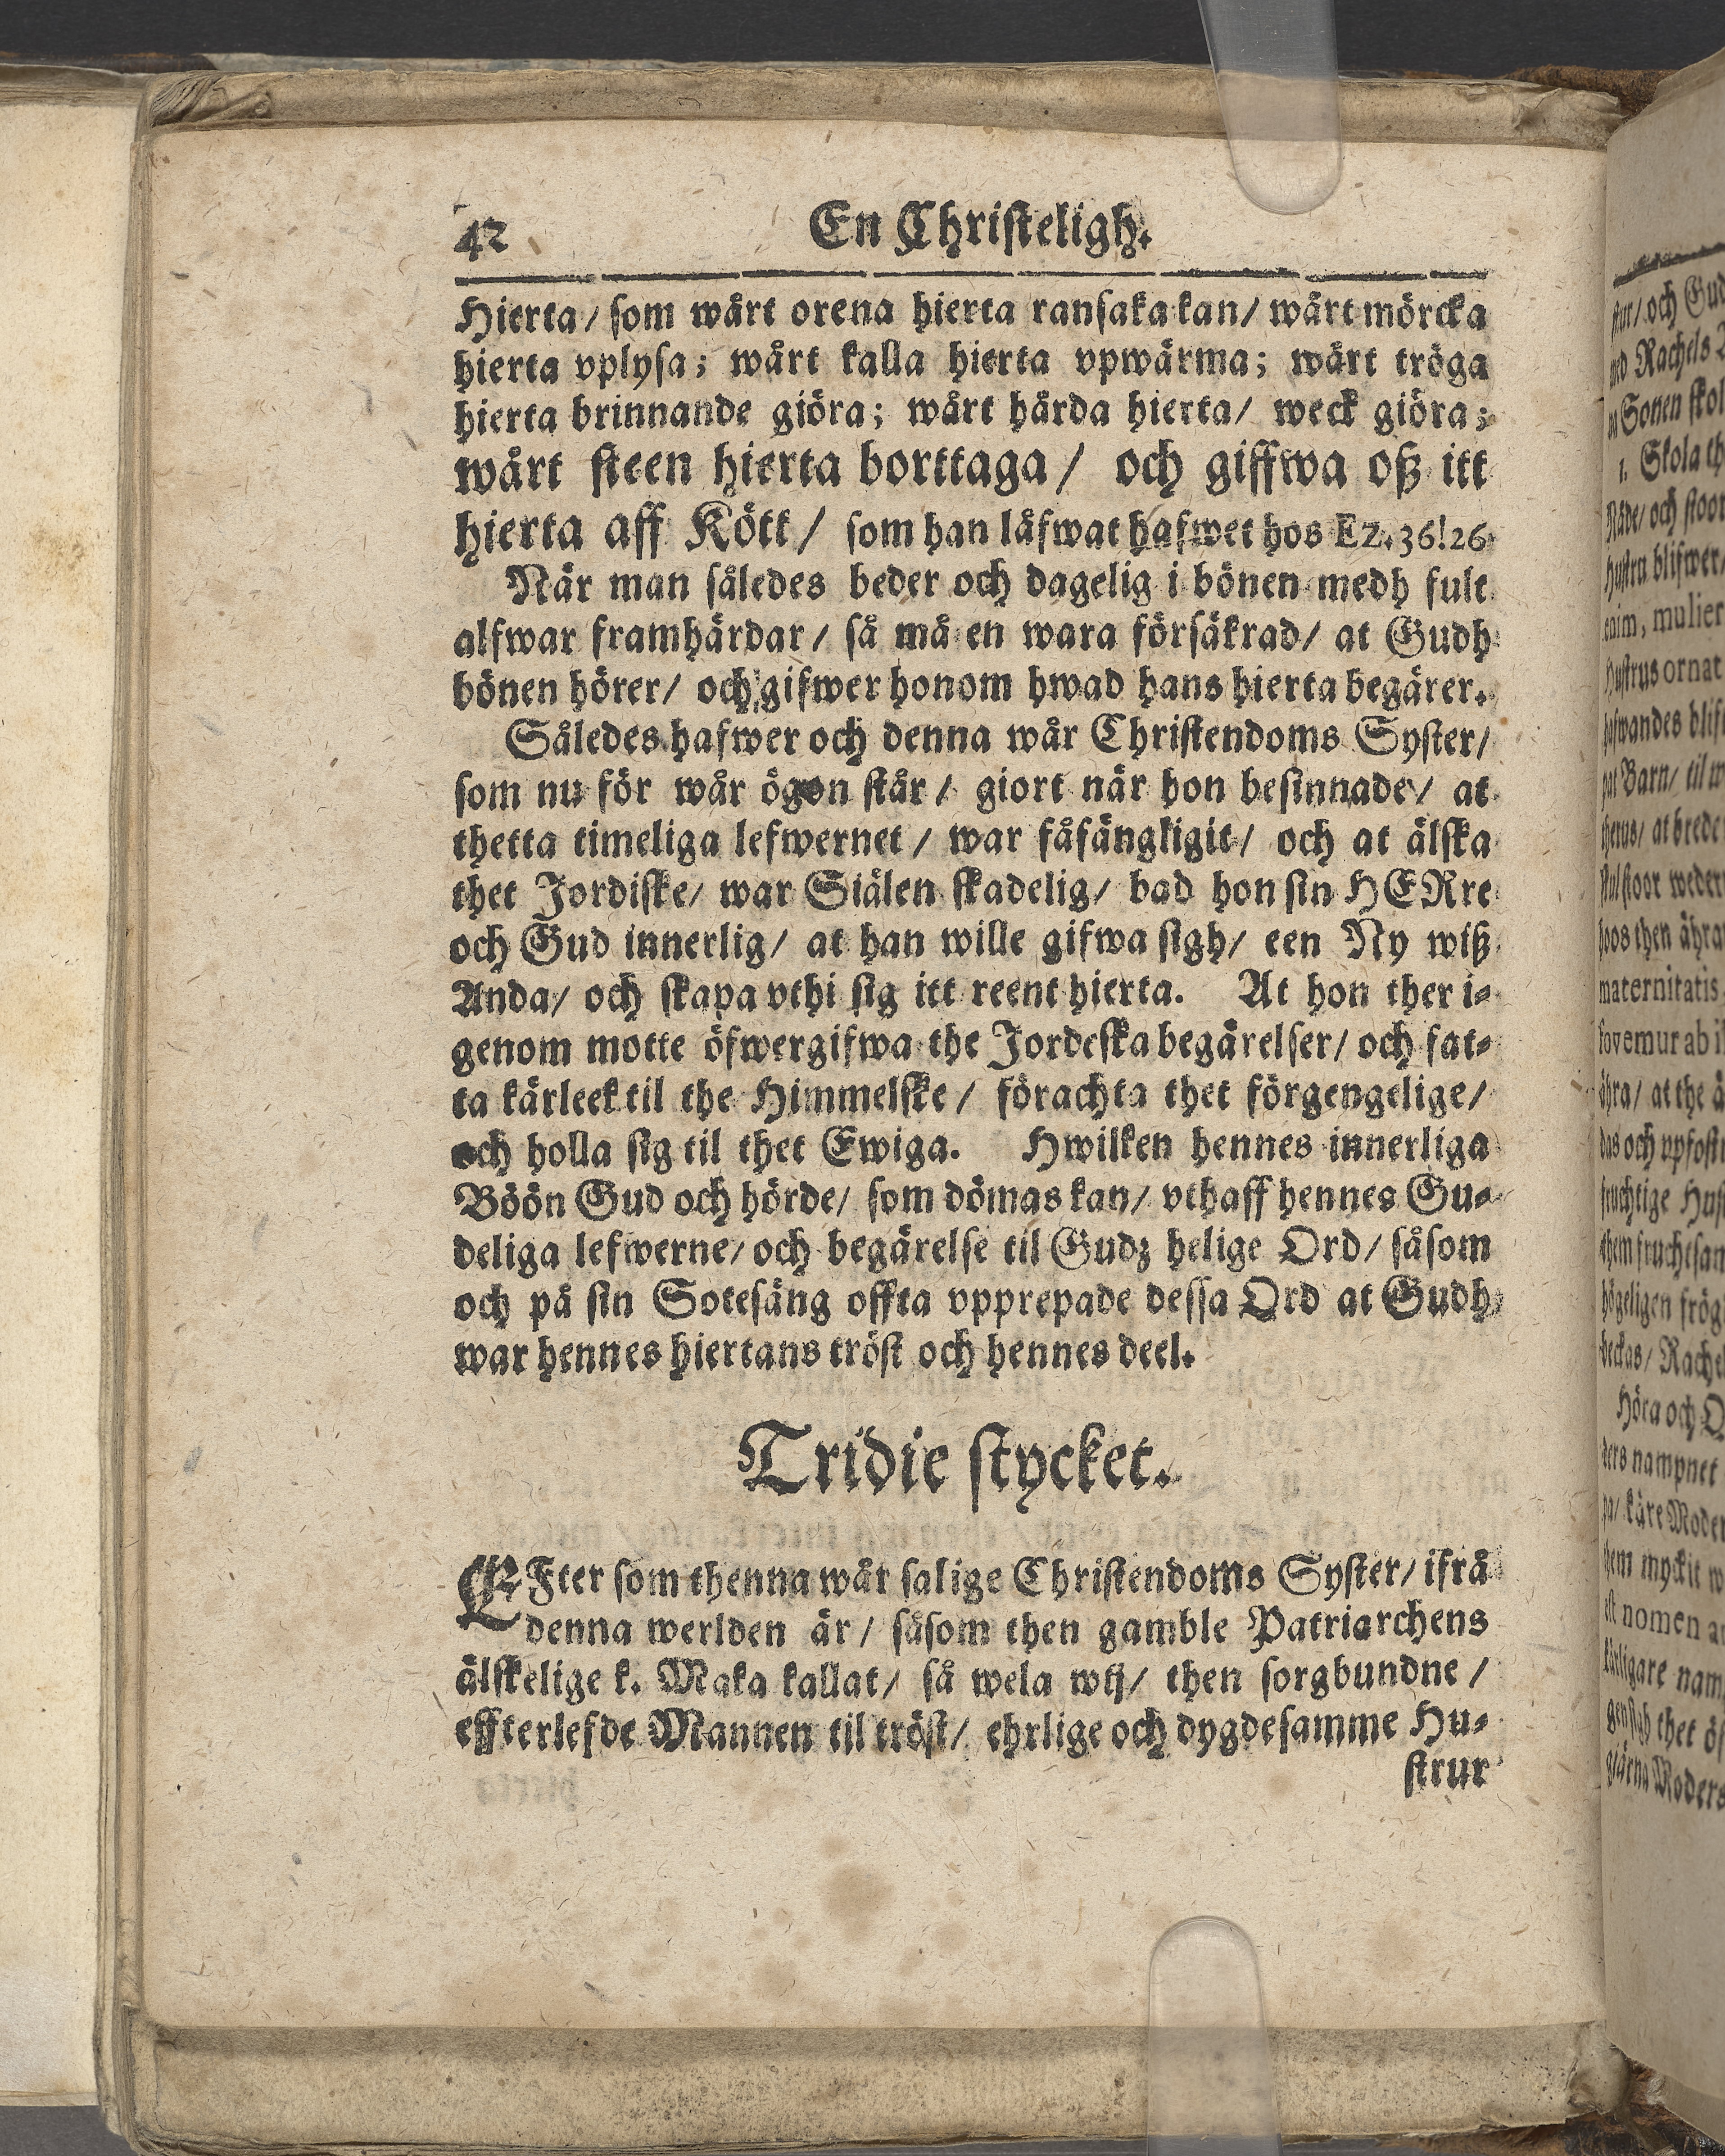 42 En Christeligh.
Hierta/ som wårt orena hierta ransaka kan/ wårt mörcka
hierta vplysa; wårt kalla hierta vpwärma; wårt tröga
hierta brinnande giöra; wårt hårda hierta/ weck giöra;
wårt steen hierta borttaga/ och giffwa oß itt
hierta aff Kött/ som han låfwat hafwet hos Ez. 36! 26
När man således beder och dagelig i bönen medh fult
alfwar framhärdar/ så må en wara försäkrad/ at Gudh
bönen hörer/ och gifwer honom hwad hans hierta begärer.
Således hafwer och denna wår Christendoms Syster/
som nu för wår ögon står/ giort när hon besinnade/ at
thetta timeliga lefwernet/ war fåfängligit/ och at älska
thet Jordiske/ war Siälen skadelig/ bad hon sin HERre
och Gud innerlig/ at han wille gifwa sigh/ een Ny wiß
Anda/ och skapa vthi sig itt reent hierta. At hon ther i-
genom motte öfwergifwa the Jordeska begärelser/ och fat-
ta kärleek til the Himmelske/ förachta thet förgengelige/
och holla sig til thet Ewiga. Hwilken hennes innerliga
Böön Gud och hörde/ som dömas kan/ vthaff hennes Gu-
deliga lefwerne/ och begärelse til Gudz helige Ord/ såsom
och på sin Sotesäng offta vpprepade dessa Ord at Gudh
war hennes hiertans tröst och hennes deel.
Tridie stycket.
EFter som thenna wår salige Christendoms Syster/ ifrå
denna werlden är/ såsom then gamble Patriarchens
älskelige k. Maka kallat/ så wela wij/ then sorgbundne/
effterlefde Mannen til tröst/ ehrlige och dygdesamme Hu-
strur
och Gud
Rachels
Sonen
1. Skola
och stoor
blifwer
enim, mulier
Hustrus ornat
Barn/ til
at brede
maternitatis
fovemur ab
at the
das och vpfost
Rache
Höra och
nampnet
käre Moder
them myckit
est nomen
thet
Moders